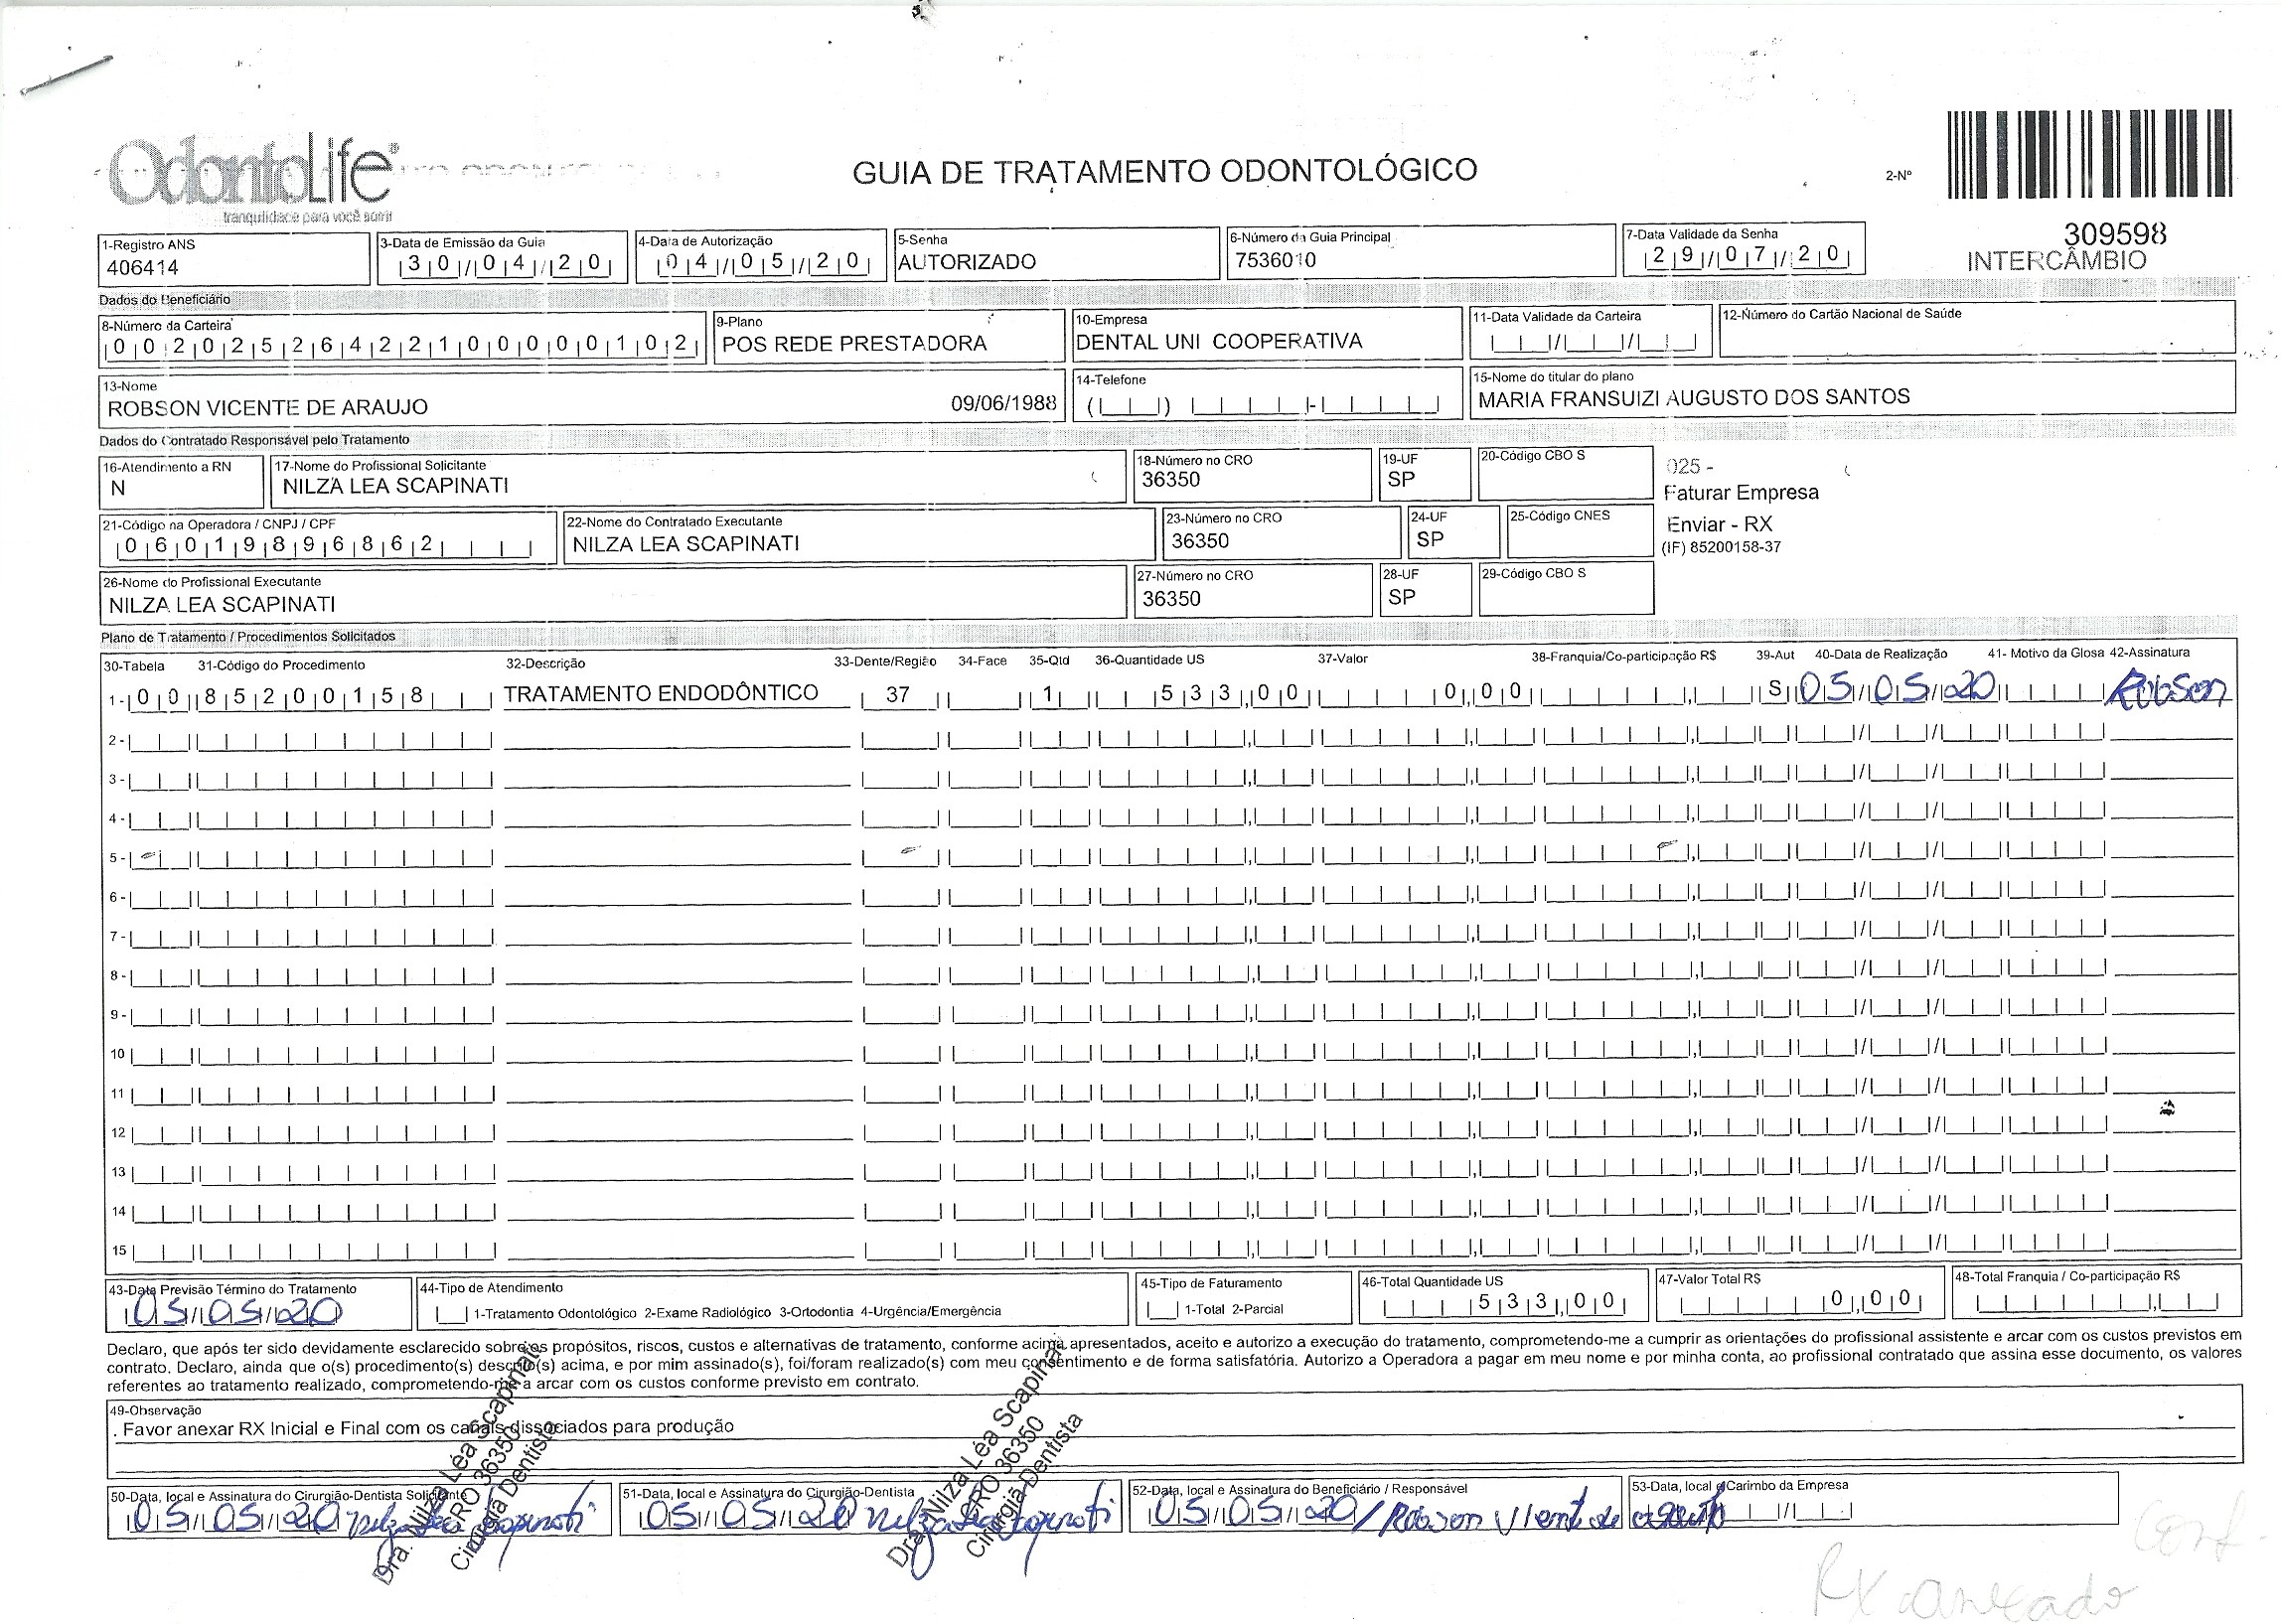 OdontoLife®
tranquilidade para você sorrir
GUIA DE TRATAMENTO ODONTOLÓGICO
2-Nº
309598
INTERCÂMBIO
1-Registro ANS
406414
3-Data de Emissão da Guia
30/04/20
4-Data de Autorização
04/05/20
5-Senha
AUTORIZADO
6-Número da Guia Principal
7536010
7-Data Validade da Senha
29/07/20
Dados do Beneficiário
8-Número da Carteira
00202526422100000102
9-Plano
POS REDE PRESTADORA
10-Empresa
DENTAL UNI COOPERATIVA
11-Data Validade da Carteira
12-Número do Cartão Nacional de Saúde
13-Nome
ROBSON VICENTE DE ARAUJO 09/06/1988
14-Telefone
15-Nome do titular do plano
MARIA FRANSUIZI AUGUSTO DOS SANTOS
Dados do Contratado Responsável pelo Tratamento
16-Atendimento a RN
N
17-Nome do Profissional Solicitante
NILZA LEA SCAPINATI
18-Número no CRO
36350
19-UF
SP
20-Código CBO S
025 -
Faturar Empresa
Enviar - RX
(IF) 85200158-37
21-Código na Operadora / CNPJ / CPF
06019896862
22-Nome do Contratado Executante
NILZA LEA SCAPINATI
23-Número no CRO
36350
24-UF
SP
25-Código CNES
26-Nome do Profissional Executante
NILZA LEA SCAPINATI
27-Número no CRO
36350
28-UF
SP
29-Código CBO S
Plano de Tratamento / Procedimentos Solicitados
30-Tabela 31-Código do Procedimento 32-Descrição 33-Dente/Região 34-Face 35-Qtd 36-Quantidade US 37-Valor 38-Franquia/Co-participação R$ 39-Aut 40-Data de Realização 41- Motivo da Glosa 42-Assinatura
1- 00 85200158 TRATAMENTO ENDODÔNTICO 37 1 533,00 0,00 S 05/05/20 Robson
2-
3-
4-
5-
6-
7-
8-
9-
10
11
12
13
14
15
43-Data Previsão Término do Tratamento
05/05/20
44-Tipo de Atendimento
1-Tratamento Odontológico 2-Exame Radiológico 3-Ortodontia 4-Urgência/Emergência
45-Tipo de Faturamento
1-Total 2-Parcial
46-Total Quantidade US
533,00
47-Valor Total R$
0,00
48-Total Franquia / Co-participação R$
Declaro, que após ter sido devidamente esclarecido sobre os propósitos, riscos, custos e alternativas de tratamento, conforme acima apresentados, aceito e autorizo a execução do tratamento, comprometendo-me a cumprir as orientações do profissional assistente e arcar com os custos previstos em
contrato. Declaro, ainda que o(s) procedimento(s) descrito(s) acima, e por mim assinado(s), foi/foram realizado(s) com meu consentimento e de forma satisfatória. Autorizo a Operadora a pagar em meu nome e por minha conta, ao profissional contratado que assina esse documento, os valores
referentes ao tratamento realizado, comprometendo-me a arcar com os custos conforme previsto em contrato.
49-Observação
. Favor anexar RX Inicial e Final com os canais dissociados para produção
50-Data, local e Assinatura do Cirurgião-Dentista Solicitante
05/05/20 Nilza Léa Scapinati
Dra. Nilza Léa Scapinati
CRO 36350
Cirurgiã Dentista
51-Data, local e Assinatura do Cirurgião-Dentista
05/05/20 Nilza Léa Scapinati
Dra. Nilza Léa Scapinati
CRO 36350
Cirurgiã Dentista
52-Data, local e Assinatura do Beneficiário / Responsável
05/05/20 / Robson Vicente de Araujo
53-Data, local e Carimbo da Empresa
Conf.
RX anexado